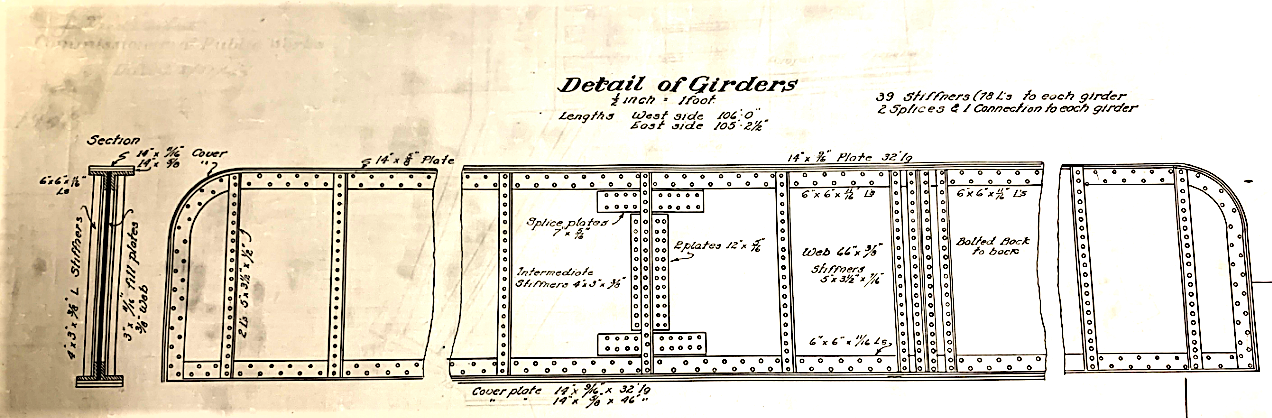 Commissioner of Public Works
Detail of Girders
½ inch = 1 foot
Lengths West side 106'-0"
East side 105'-2½"
39 Stiffners (78 Ls to each girder
2 Splices & 1 Connection to each girder
Section
14" x 9/16" Cover
14" x 5/8" "
6"x6"x
Ls
4" x 3" x 3/8" L Stiffners
3" x 11/16" fill plates
3/8 Web
14" x 5/8" Plate
2 Ls 5" x 3½" x ½"
14" x 9/16" Plate 32' lg
Splice plates
7" x
2 plates 12" x
Intermediate
Stiffners 4" x 3" x 3/8"
6" x 6" x 11/16" Ls
Web 66" x 3/8"
Stiffners
5" x 3½" x 7/16"
6" x 6" x 11/16 Ls
6" x 6" x 11/16" L's
Bolted Back
to back
Cover plate 14" x 9/16" x 32' lg
14" x 5/8 x 46' "